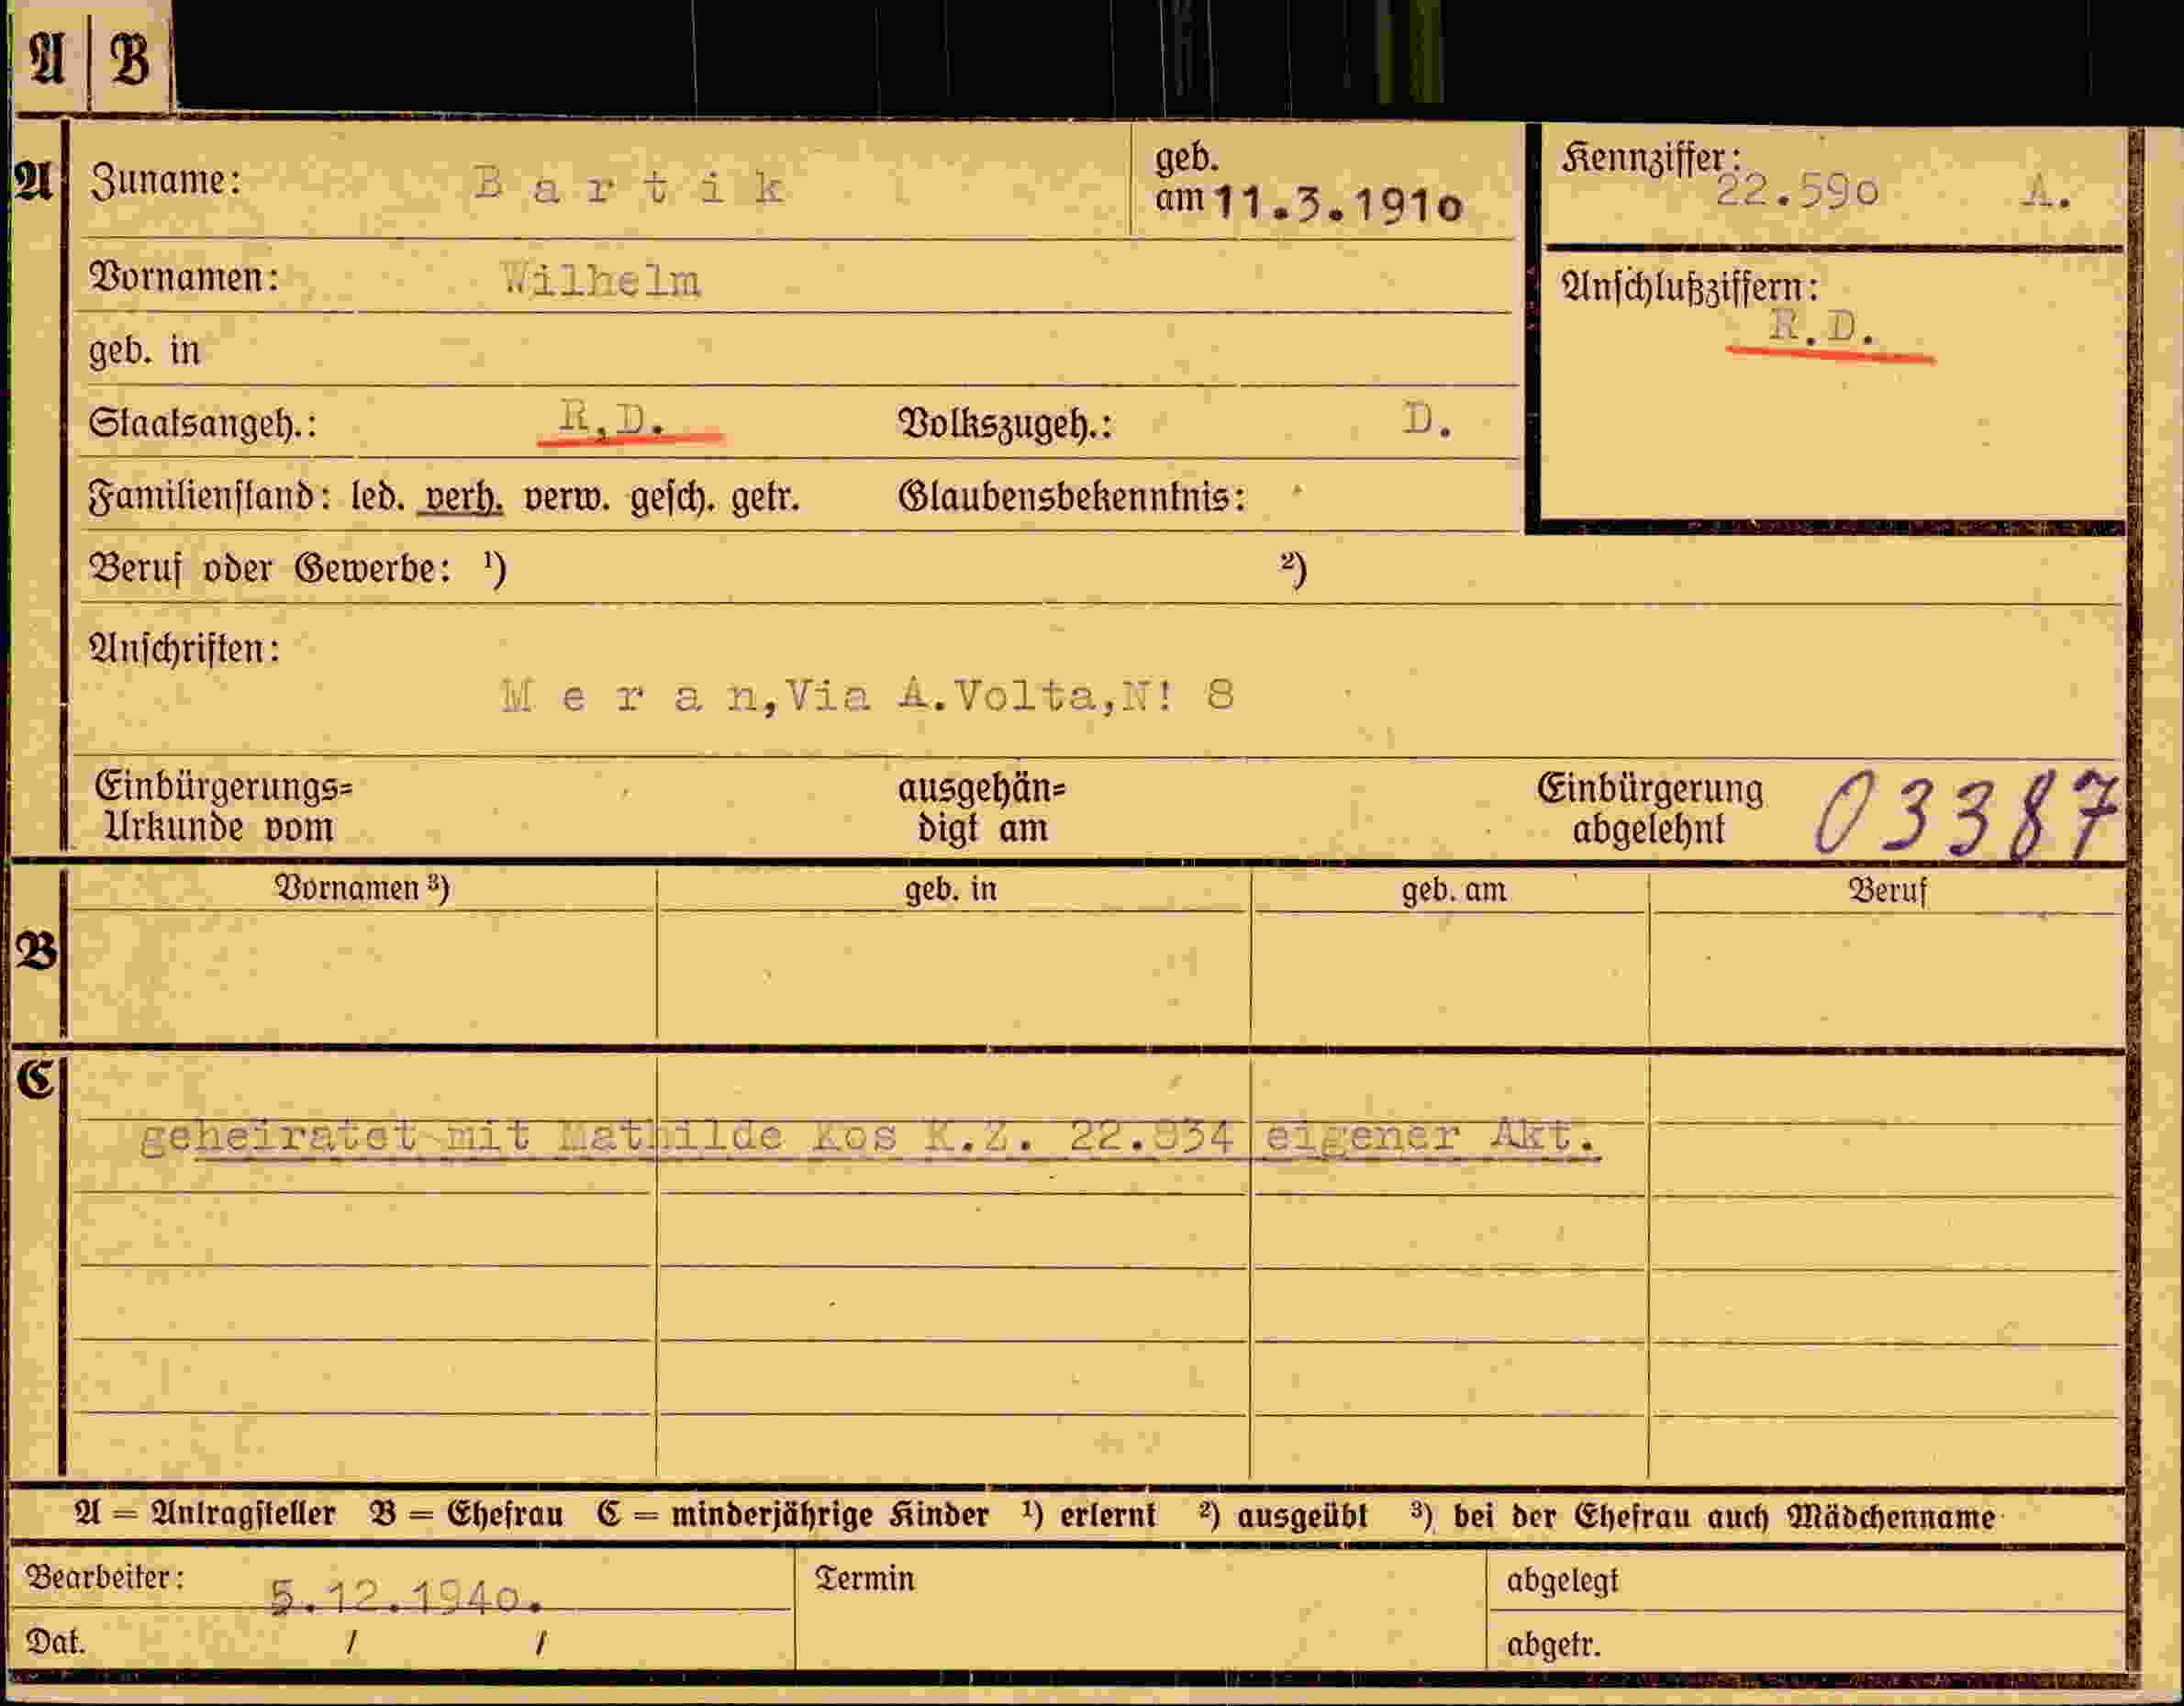 A B
A Zuname: Bartik geb. am 11.3.1910 Kennziffer: 22.590 A.
Vornamen: Wilhelm Anschlußziffern: R.D.
geb. in
Staatsangeh.: R,D. Volkszugeh.: D.
Familienstand: led. verh. verw. gesch. getr. Glaubensbekenntnis:
Beruf oder Gewerbe: ¹) ²)
Anschriften:
Meran,Via A.Volta,N! 8
Einbürgerungs= ausgehän= Einbürgerung 03387
Urkunde vom digt am abgelehnt
Vornamen ³) geb. in geb. am Beruf
B
C
geheiratet mit Mathilde Kos K.Z. 22.834 eigener Akt.
A = Antragsteller B = Ehefrau C = minderjährige Kinder ¹) erlernt ²) ausgeübt ³) bei der Ehefrau auch Mädchenname
Bearbeiter: 5.12.1940. Termin abgelegt
Dat. / / abgetr.